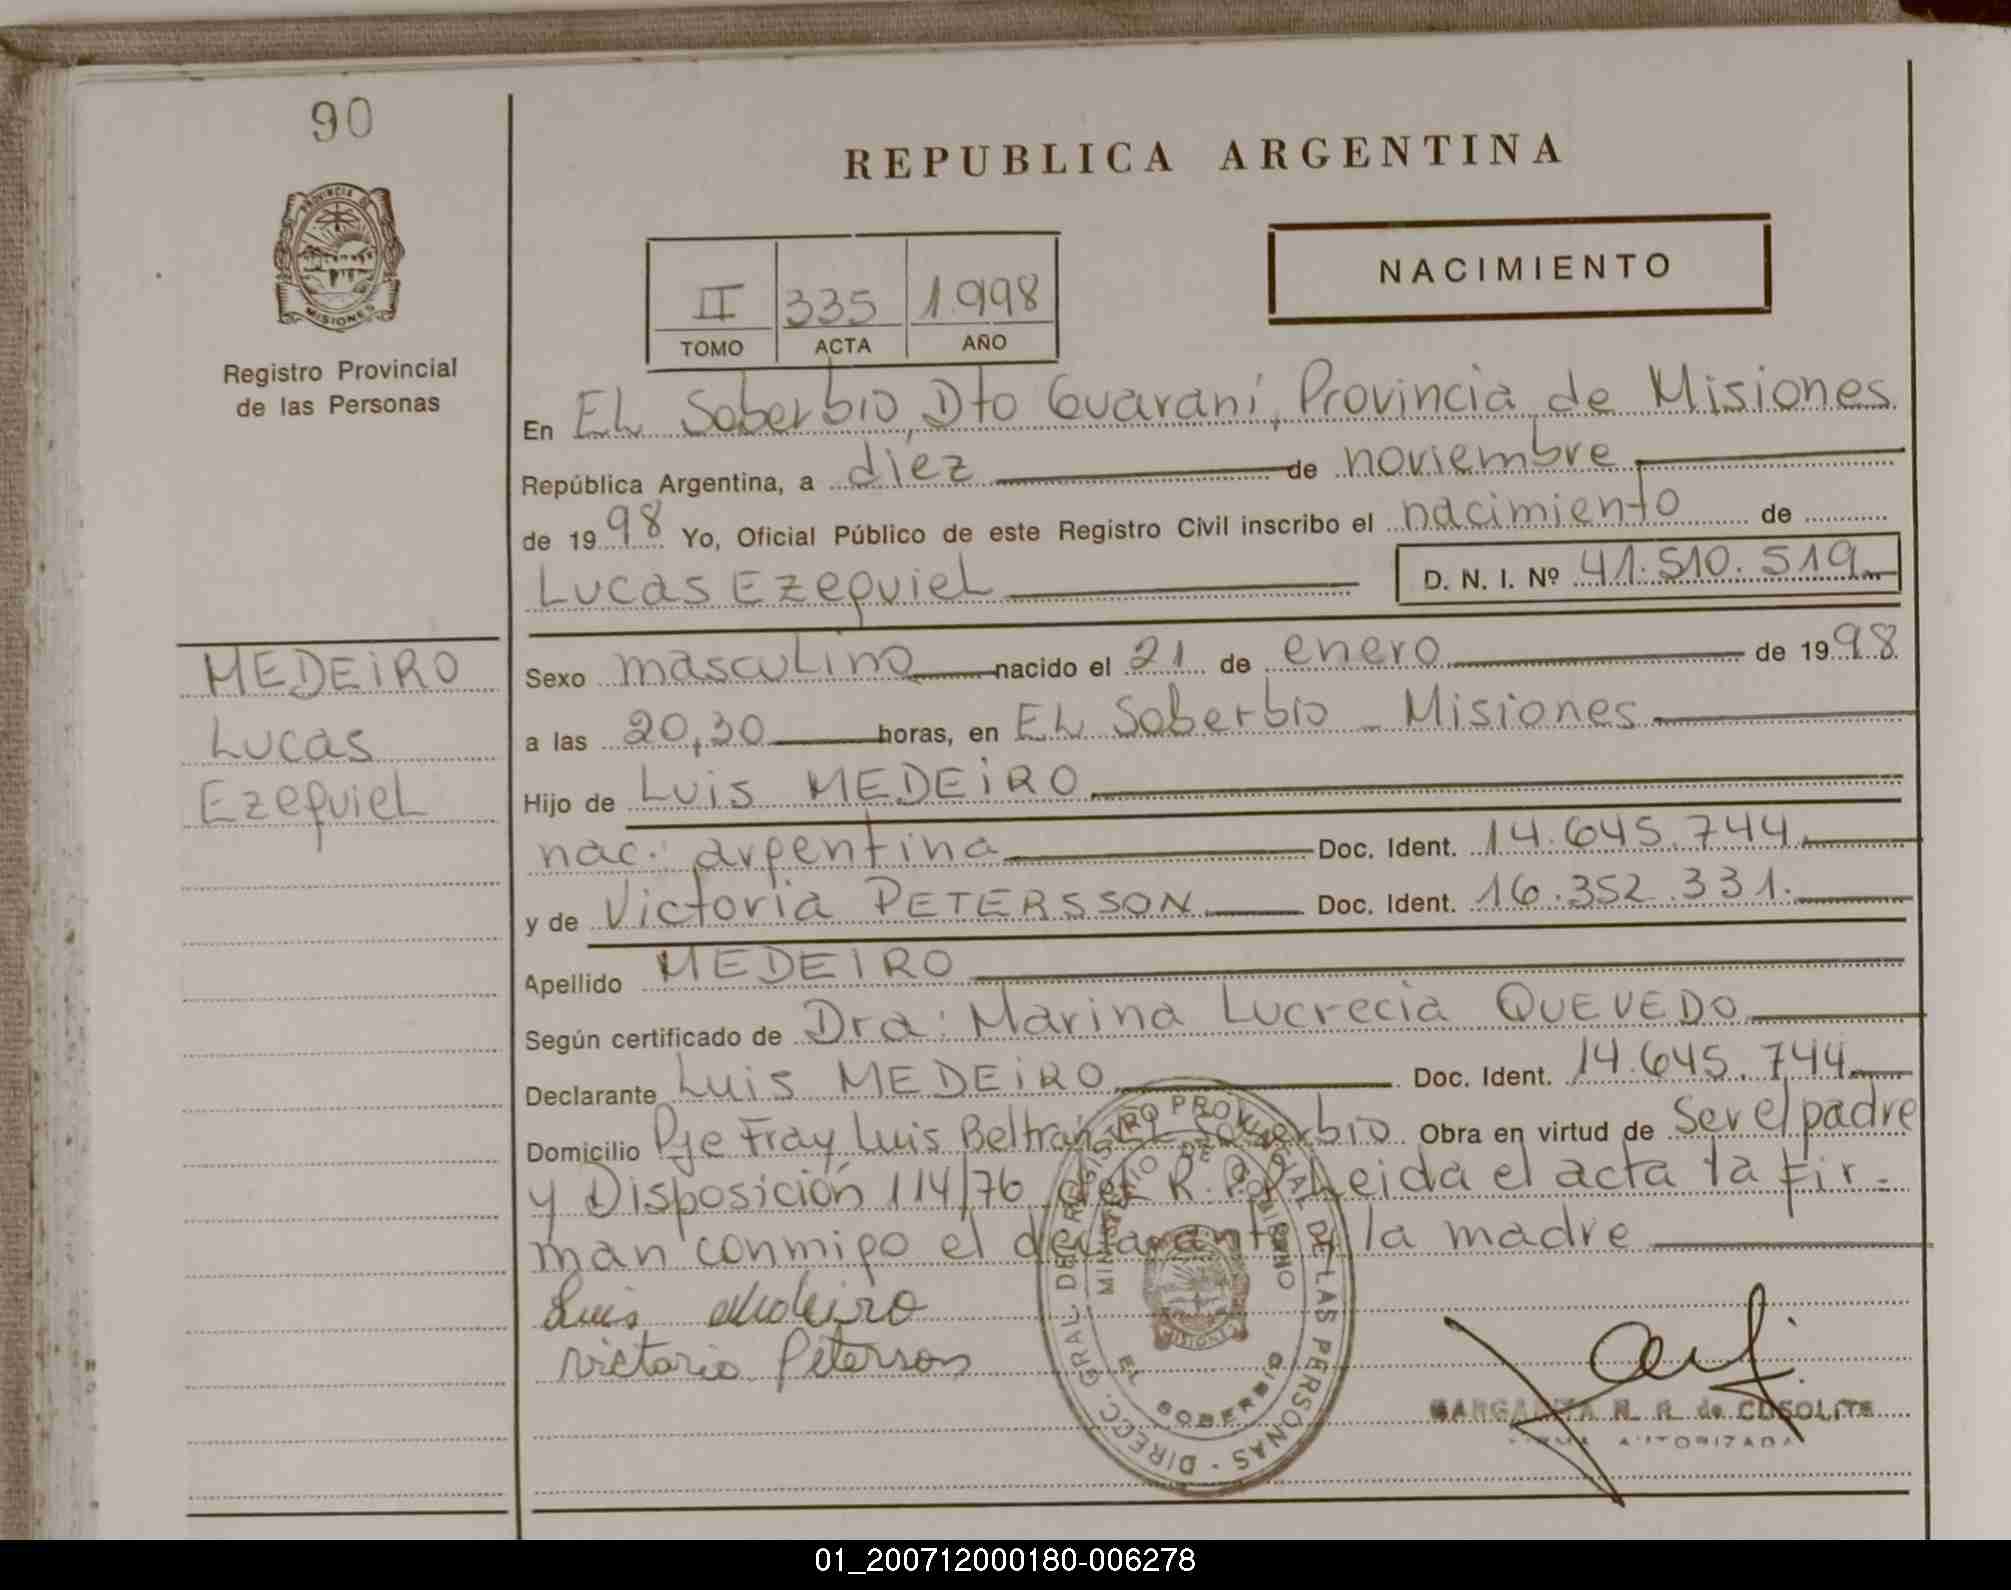 90
PROVINCIA DE
MISIONES
Registro Provincial
de las Personas
MEDEIRO
Lucas
EzequieL
REPUBLICA ARGENTINA
NACIMIENTO
II 335 1.998
TOMO ACTA AÑO
En EL Soberbio, Dto Guaraní, Provincia de Misiones
República Argentina, a diez de noviembre
de 1998 Yo, Oficial Público de este Registro Civil inscribo el nacimiento de
Lucas EzequieL D. N. I. Nº 41.510.519
Sexo masculino nacido el 21 de enero de 1998
a las 20,30 horas, en EL Soberbio - Misiones
Hijo de Luis MEDEiRO
nac. argentina Doc. Ident. 14.645.744.
y de Victoria PETERSSON Doc. Ident. 16.352.331.
Apellido MEDEIRO
Según certificado de Dra: Marina Lucrecia QUEVEDO
Declarante Luis MEDEiRO Doc. Ident. 14.645.744
Domicilio Pje Fray Luis Beltrán EL Soberbio Obra en virtud de ser el padre
y Disposición 114/76 del R.P.P. Leida el acta la fir-
man conmigo el declarante y la madre
Luis Medeiro
Victoria Peterson
DIRECC. GRAL DEL REGISTRO PROVINCIAL DE LAS PERSONAS -
MINISTERIO DE GOBIERNO
MISIONES
EL SOBERBIO
MARGARITA R. R. de COSOLITE
FIRMA AUTORIZADA
01_200712000180-006278